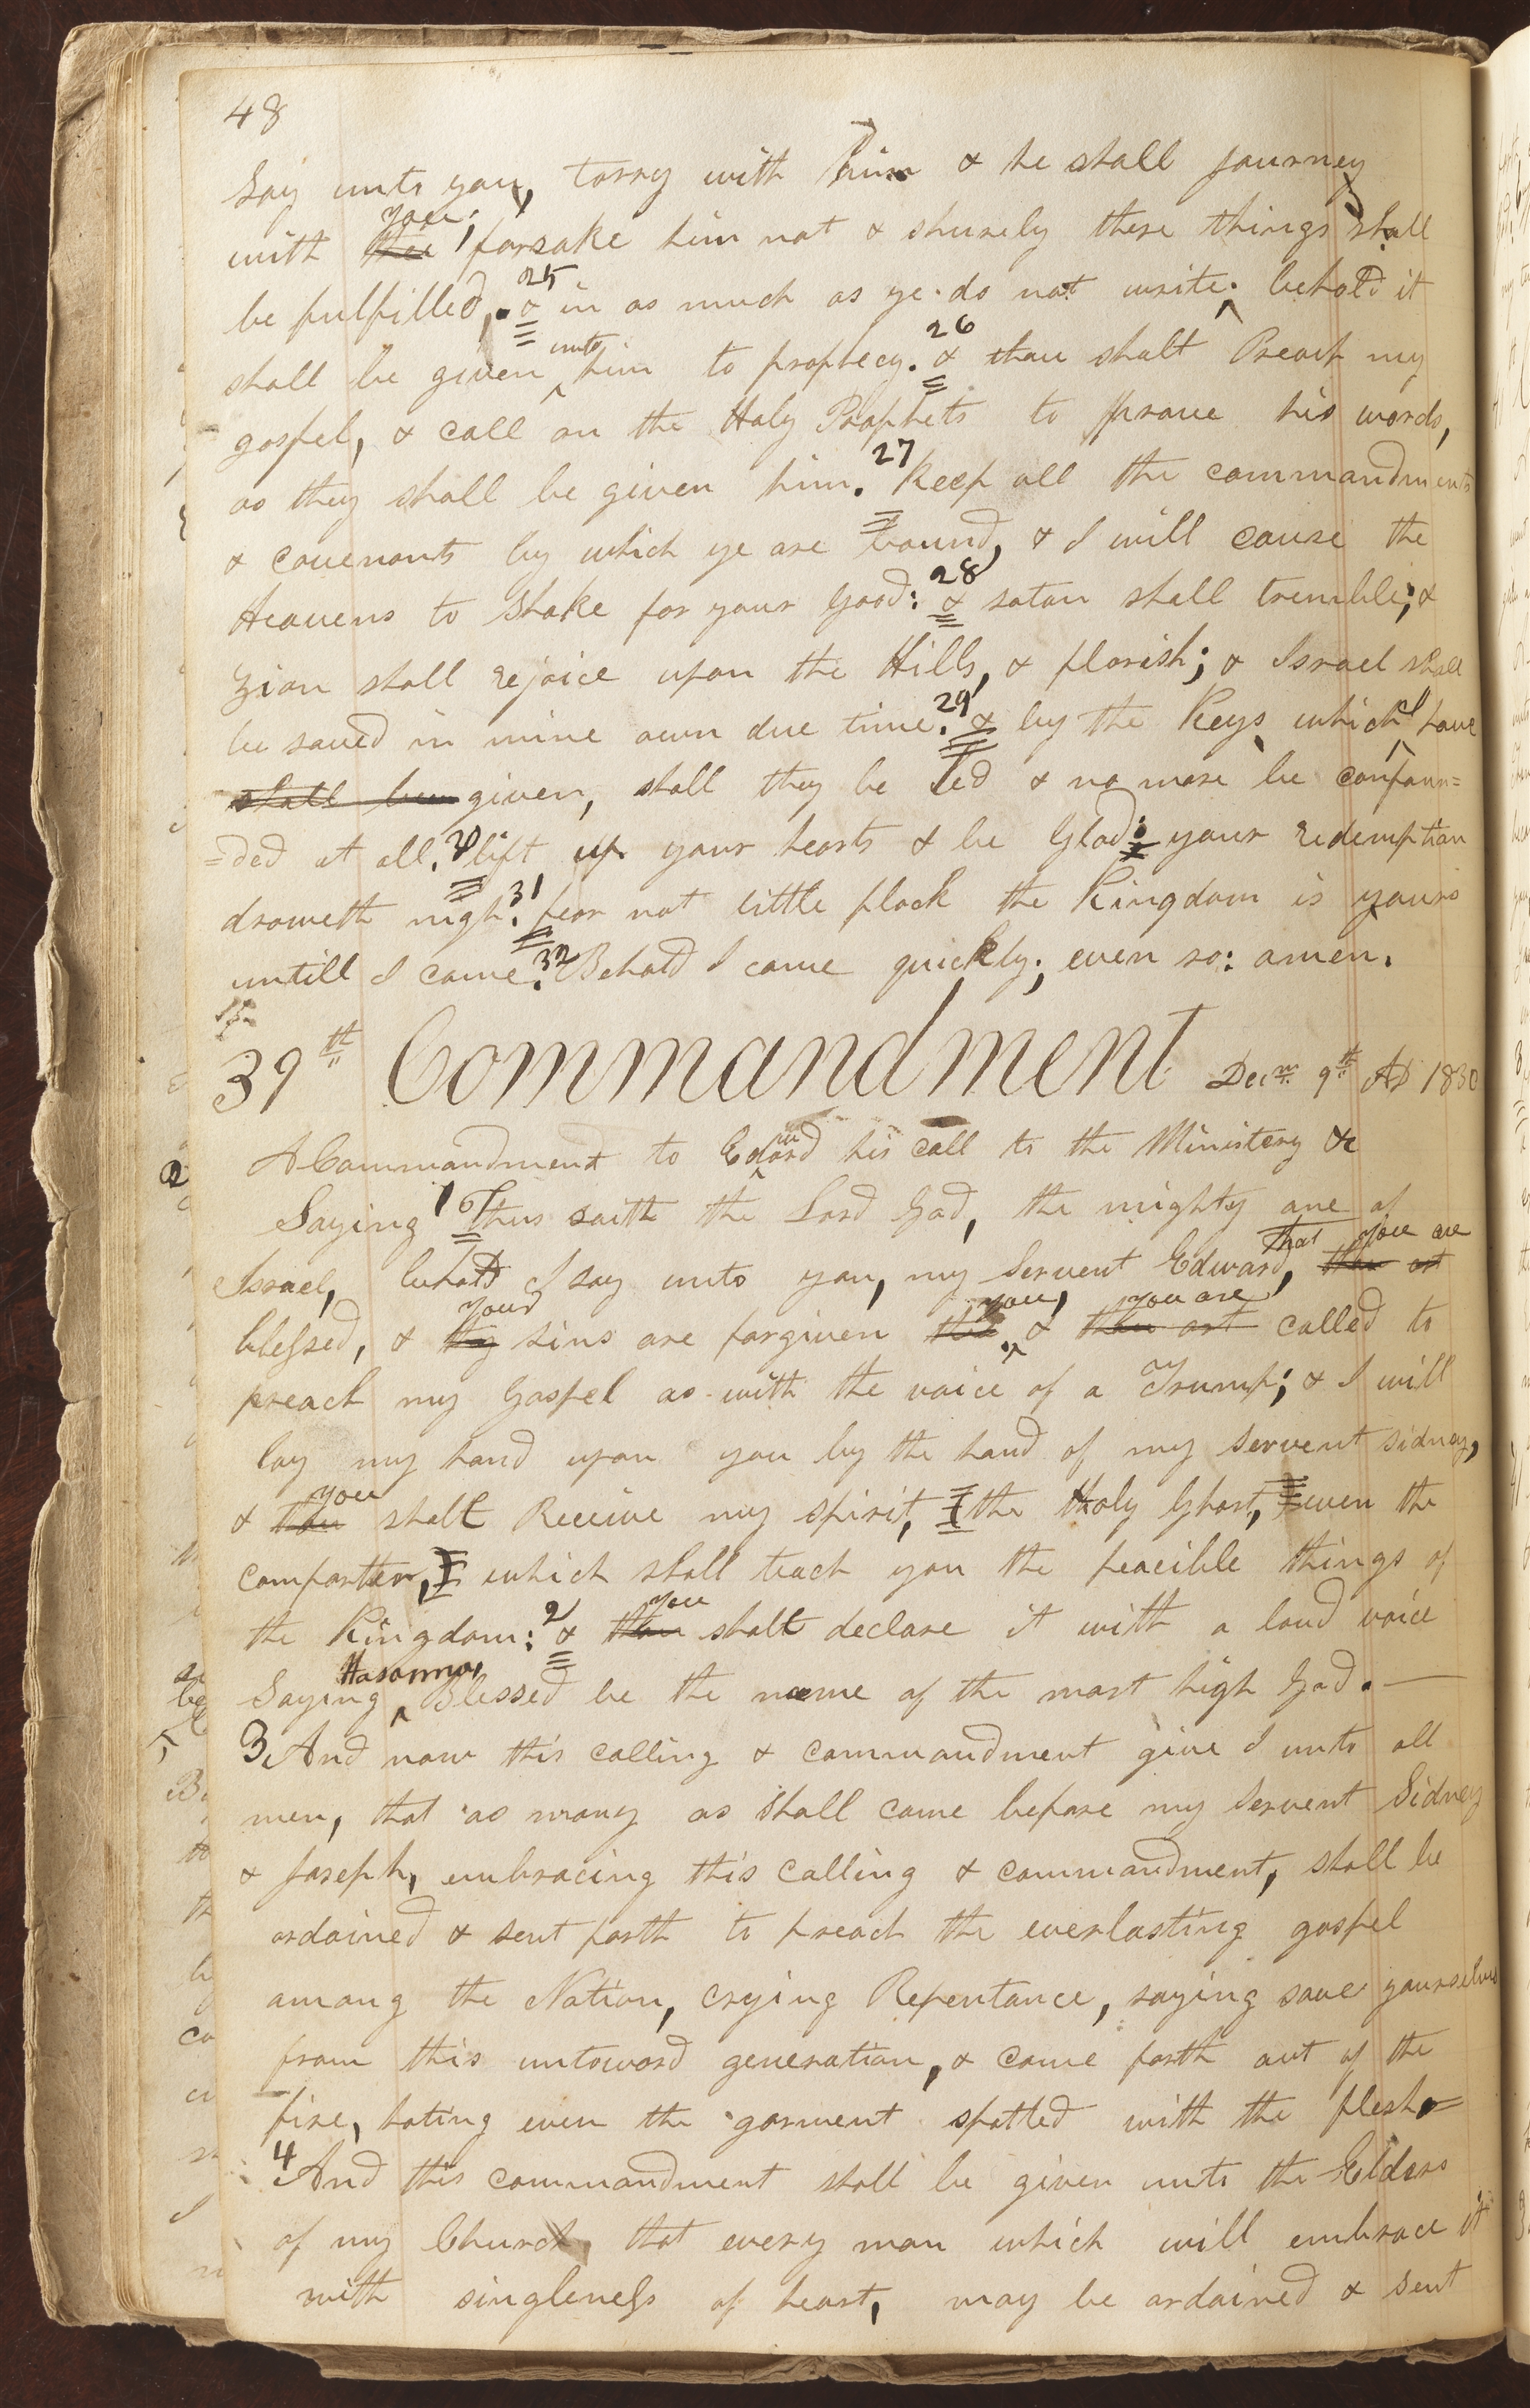 48
Say unto you, tarry with him & he shall journey
with thee you; forsake him not & shurely these things shall
be fulfilled. 25 & in as much as ye do not write behold it
shall be given unto him to prophecy. 26 & thou shalt Preach my
gospel, & call on the Holy Prophets to prove his words,
as they shall be given him. 27 Keep all the commandments
& covenants by which ye are bound, & I will cause the
Heavens to Shake for your good: 28 & satan shall tremble; &
Zion shall rejoice upon the Hills, & florish; & Israel shall
be saved in mine own due time. 29 & by the Keys which I have
shall be given, shall they be led & no more be confoun=
=ded at all. lift up your hearts & be Glad: your redemption
draweth nigh. 31 fear not little flock the Kingdom is yours
untill I come. 32 Behold I come quickly; even so: amen.
39th Commandment Decm 9th AD 1830
A Commandment to Edward his call to the Ministery &c
Saying 1 Thus saith the Lord God, the mighty one of
Israel, behold I say unto you, my Servent Edward, that thou art you are
blessed, & thy your sins are forgiven thee you, & thou art you are called to
preach my Gospel as with the voice of a Trump; & I will
lay my hand upon you by the hand of my Servent Sidney,
& thou you shalt Receive my spirit, the Holy Ghost, even the
comforter, which shall teach you the peacible things of
the Kingdom: 2 & thou you shalt declare it with a loud voice
Saying Hosanna, Blessed be the name of the most high God. —
3 And now this calling & commandment give I unto all
men, that as many as shall come before my Servent Sidney
& Joseph, embracing this calling & commandment, shall be
ordained & sent forth to preach the everlasting gospel
among the Nation, crying Repentance, saying save yourselves
from this untoward generation, & come forth out of the
fire, hating even the garment spotted with the flesh
4 And this commandment shall be given unto the Elders
of my Church, that every man which will embrace it
with singleness of heart, may be ordained & sent